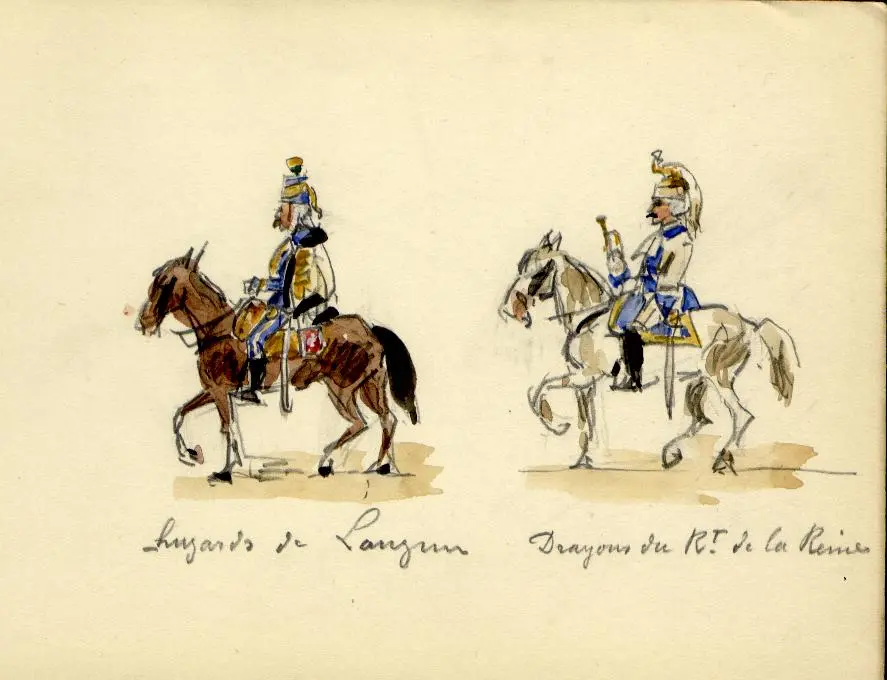 huzards de Lauzun
Dragons du Rt. de la Reine